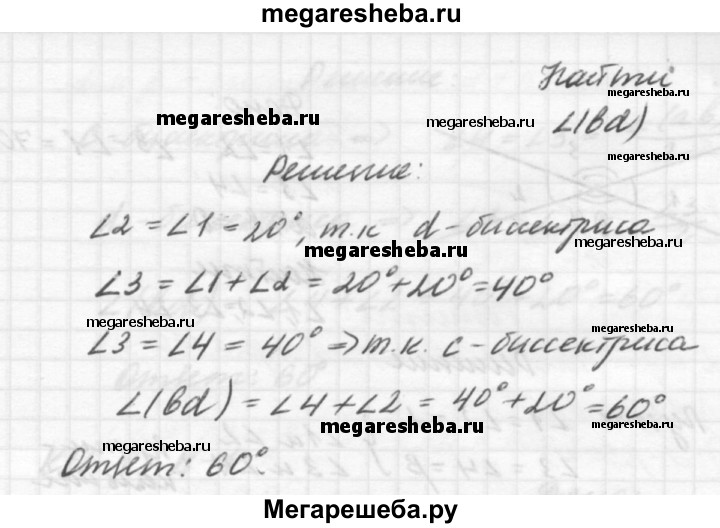 megaresheba.ru
Найти
megaresheba.ru
megaresheba.ru megaresheba.ru ∠(bd)
megaresheba.ru
Решение:
∠2 = ∠1 = 20°, т.к d - биссектриса
megaresheba.ru
∠3 = ∠1 + ∠2 = 20° + 20° = 40°
megaresheba.ru megaresheba.ru
∠3 = ∠4 = 40° => т.к. c - биссектриса
∠(bd) = ∠4 + ∠2 = 40° + 20° = 60°
megaresheba.ru megaresheba.ru
megaresheba.ru
Ответ: 60°.
Мегарешеба.ру